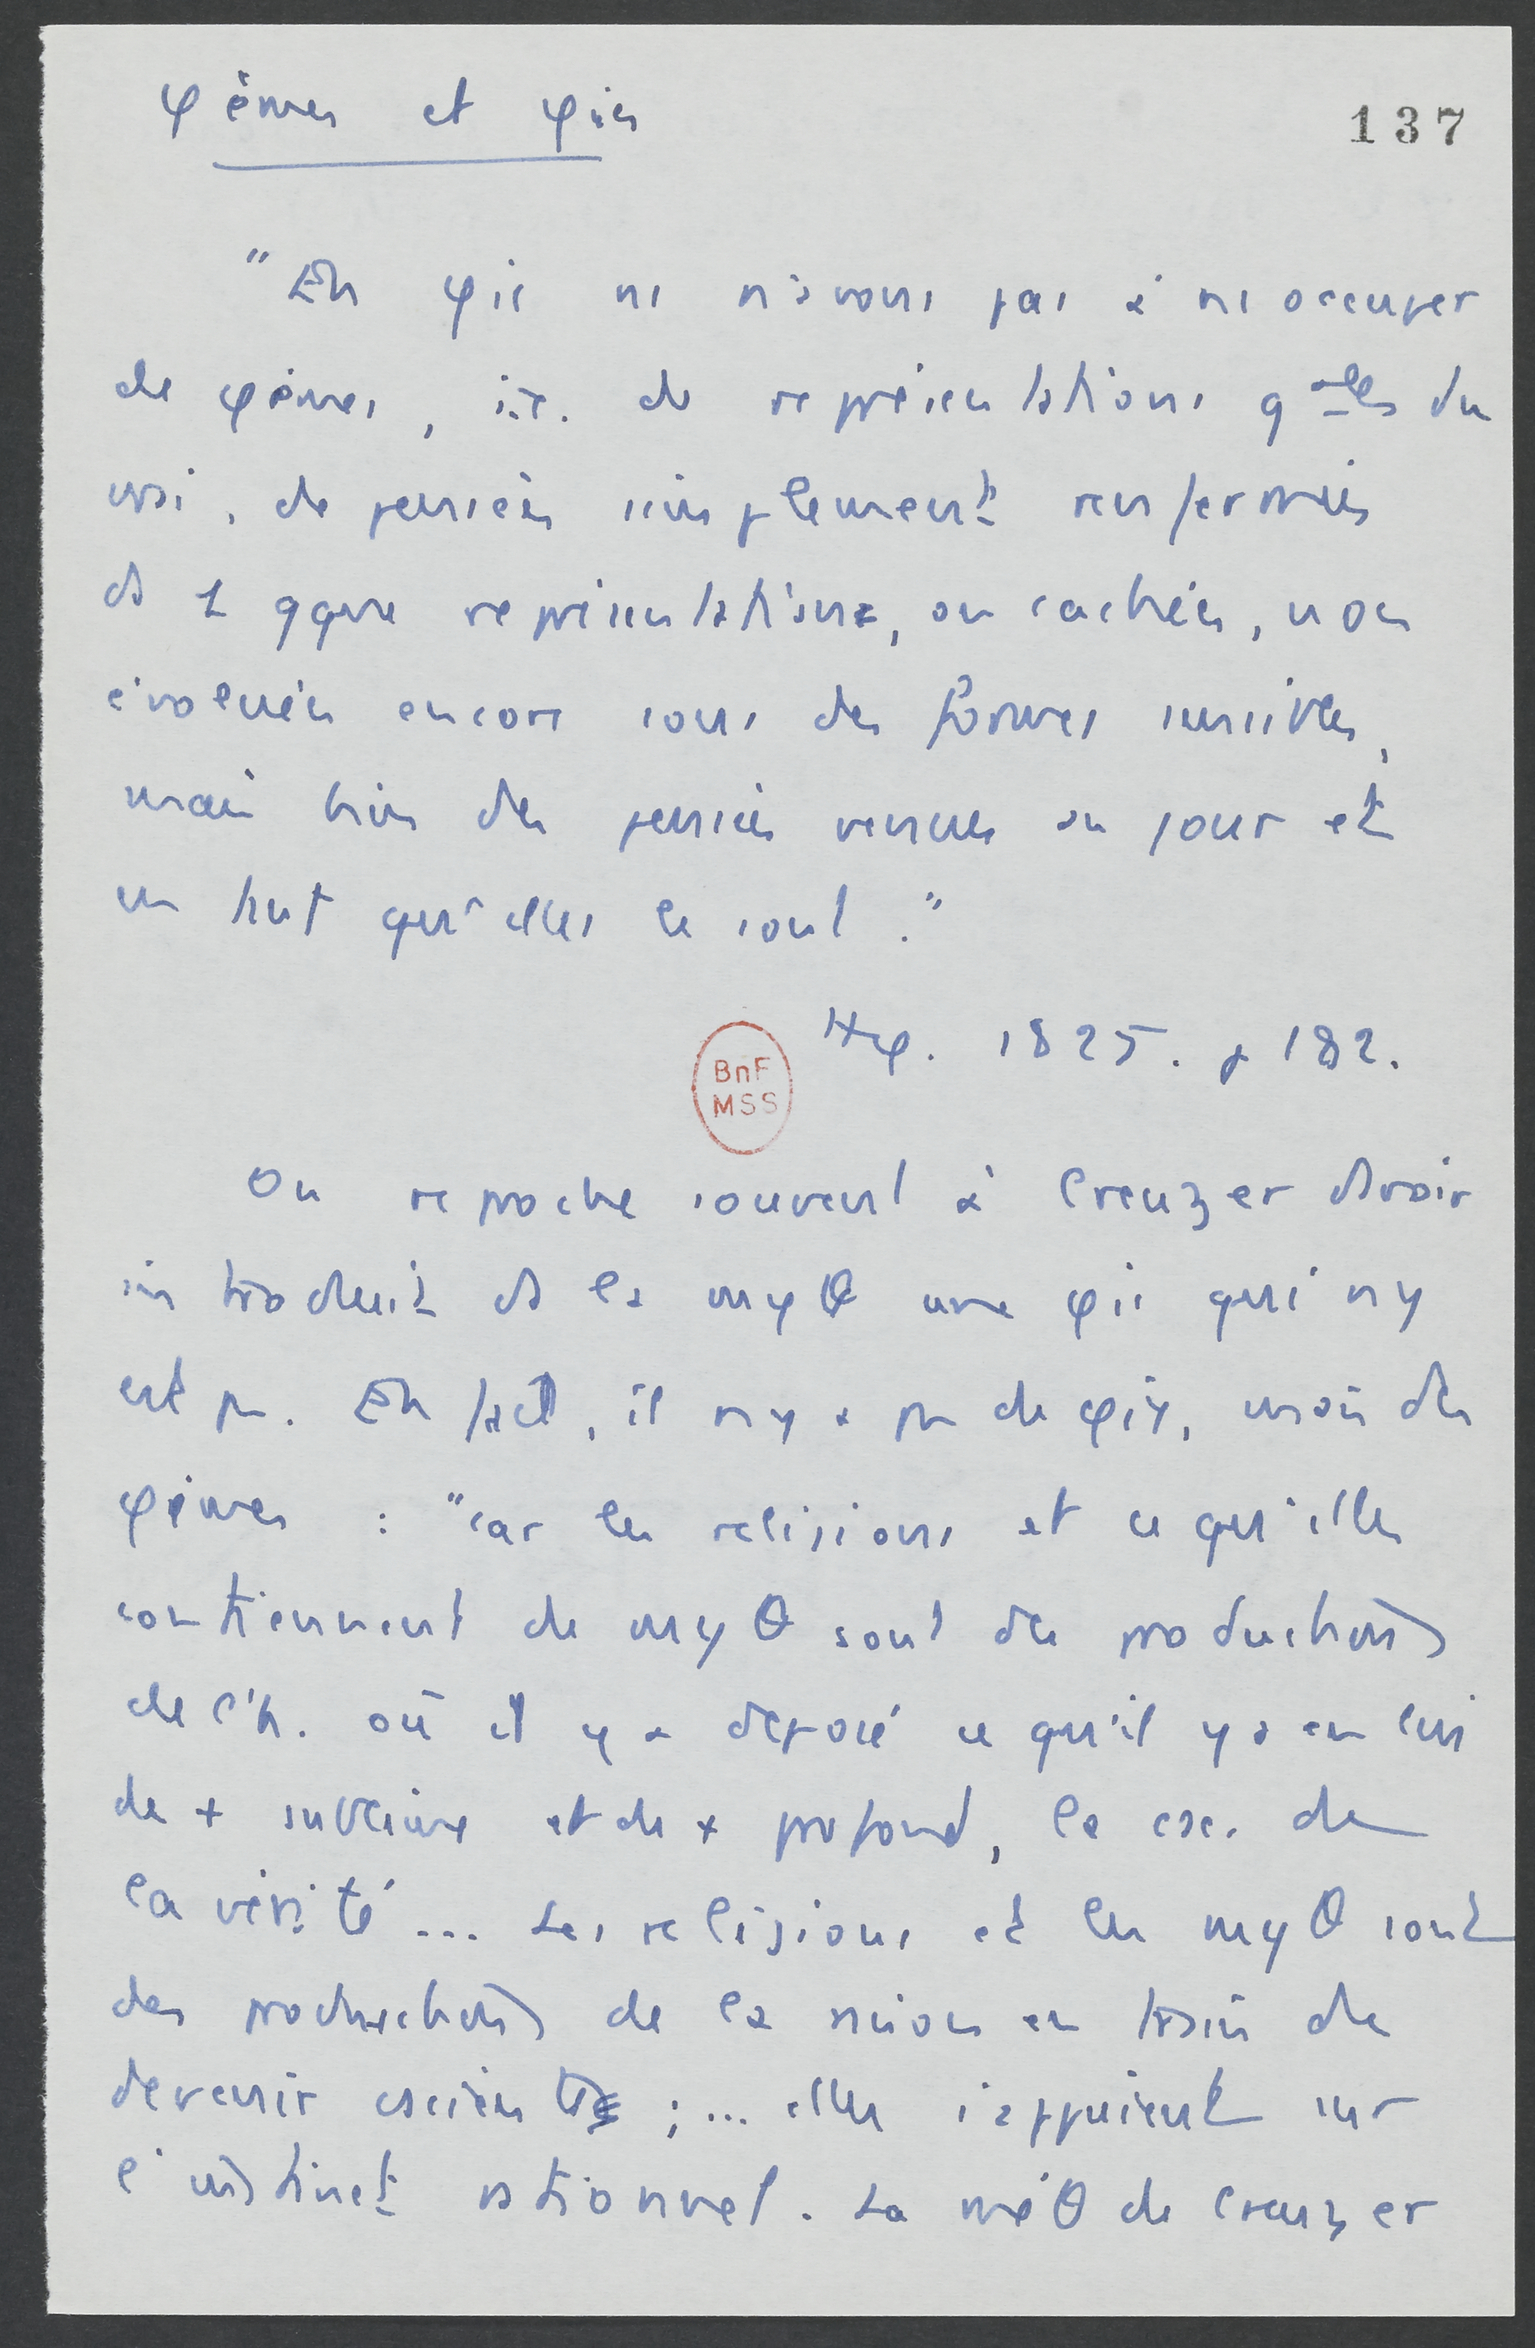 φèmes et φies
137
"En φie ns n'avons pas à ns occuper
de φèmes, i.e. de représentations gales du
vrai, de pensées simplement renfermées
ds 1 qque représentations, ou cachées, non
évoluées encore sous des formes sensibles,
mais bien des pensées venues au jour et
en tant qu'elles le sont."
Hφ. 1825. p 182.
On reproche souvent à Creuzer d'avoir
introduit ds la myθ une φie qui n'y
est pas. En fait, il n'y a pas de φie, mais des
φèmes : "car les religions et ce qu'elles
contiennent de myθ sont des productions
de l'h. où il y a déposé ce qu'il y a en lui
de + sublime et de + profond, la csc. de
la vérité ... Les religions et les myθ sont
des productions de la raison en train de
devenir csciente ; ... elles s'appuient sur
l'instinct rationnel. La méθ de Creuzer
BnF
MSS